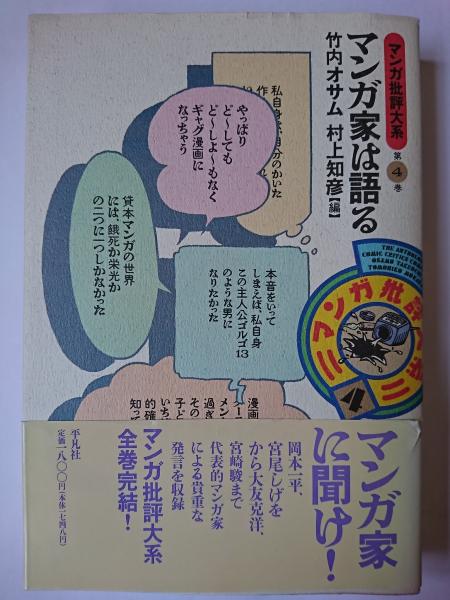 マンガ批評大系
第4巻
マンガ家は語る
竹内オサム 村上知彦【編】
私自身が、自分のかいた
作
やっぱり
ど〜しても
ど〜しよ〜もなく
ギャグ漫画に
なっちゃう
貸本マンガの世界
には、餓死か栄光か
の二つに一つしかなかった
本音をいって
しまえば、私自身
この主人公ゴルゴ13
のような男に
なりたかった
マンガ批評
4
漫画
メン
過ぎ
その
子ど
いち
的確
知っ
マンガ家
に聞け!
岡本一平、
宮尾しげを
から大友克洋、
宮崎駿まで
代表的マンガ家
による貴重な
発言を収録
マンガ批評大系
全巻完結!
平凡社
定価一八〇〇円(本体一七四八円)